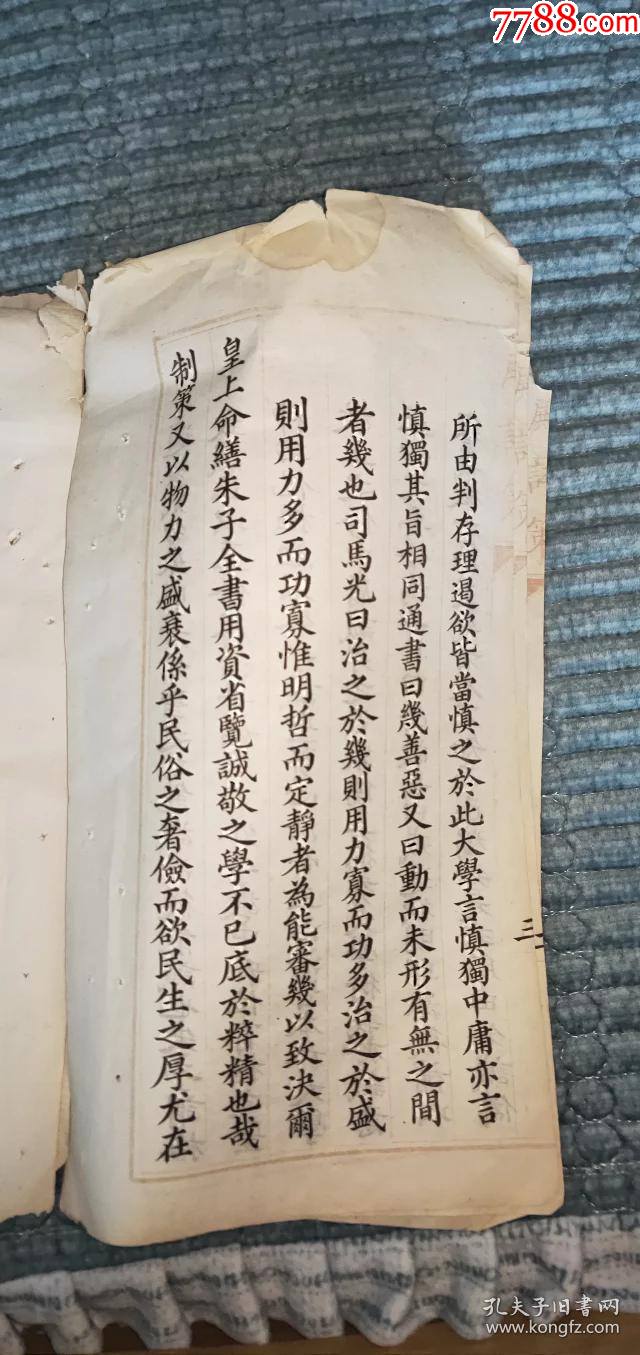 7788.com
所由判存理遏欲皆當慎之於此大學言慎獨中庸亦言
慎獨其旨相同通書曰幾善惡又曰動而未形有無之間
者幾也司馬光曰治之於幾則用力寡而功多治之於盛
則用力多而功寡惟明哲而定靜者為能審幾以致決爾
皇上命繕朱子全書用資省覽誠敬之學不已底於粹精也哉
制策又以物力之盛衰係乎民俗之奢儉而欲民生之厚尤在
三
孔夫子旧书网
www.kongfz.com